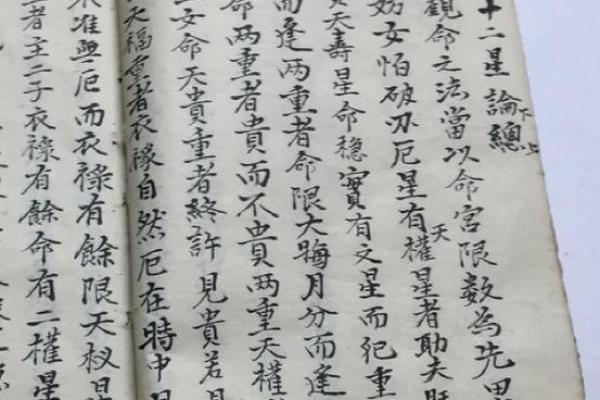 十二星論總下上
觀命之法當以命宮限数為先男
妨女怕破刃厄星有天權星者助夫旺
天壽星命穩實有文星而犯重
而逢两重者命限大晦月分而逢
命两重者貴而不貴两重天權
女命天貴重者終許見貴若月
天福重者衣祿自然厄在時中
准與厄而衣祿有餘限天
者主二子衣祿有餘命有二權星